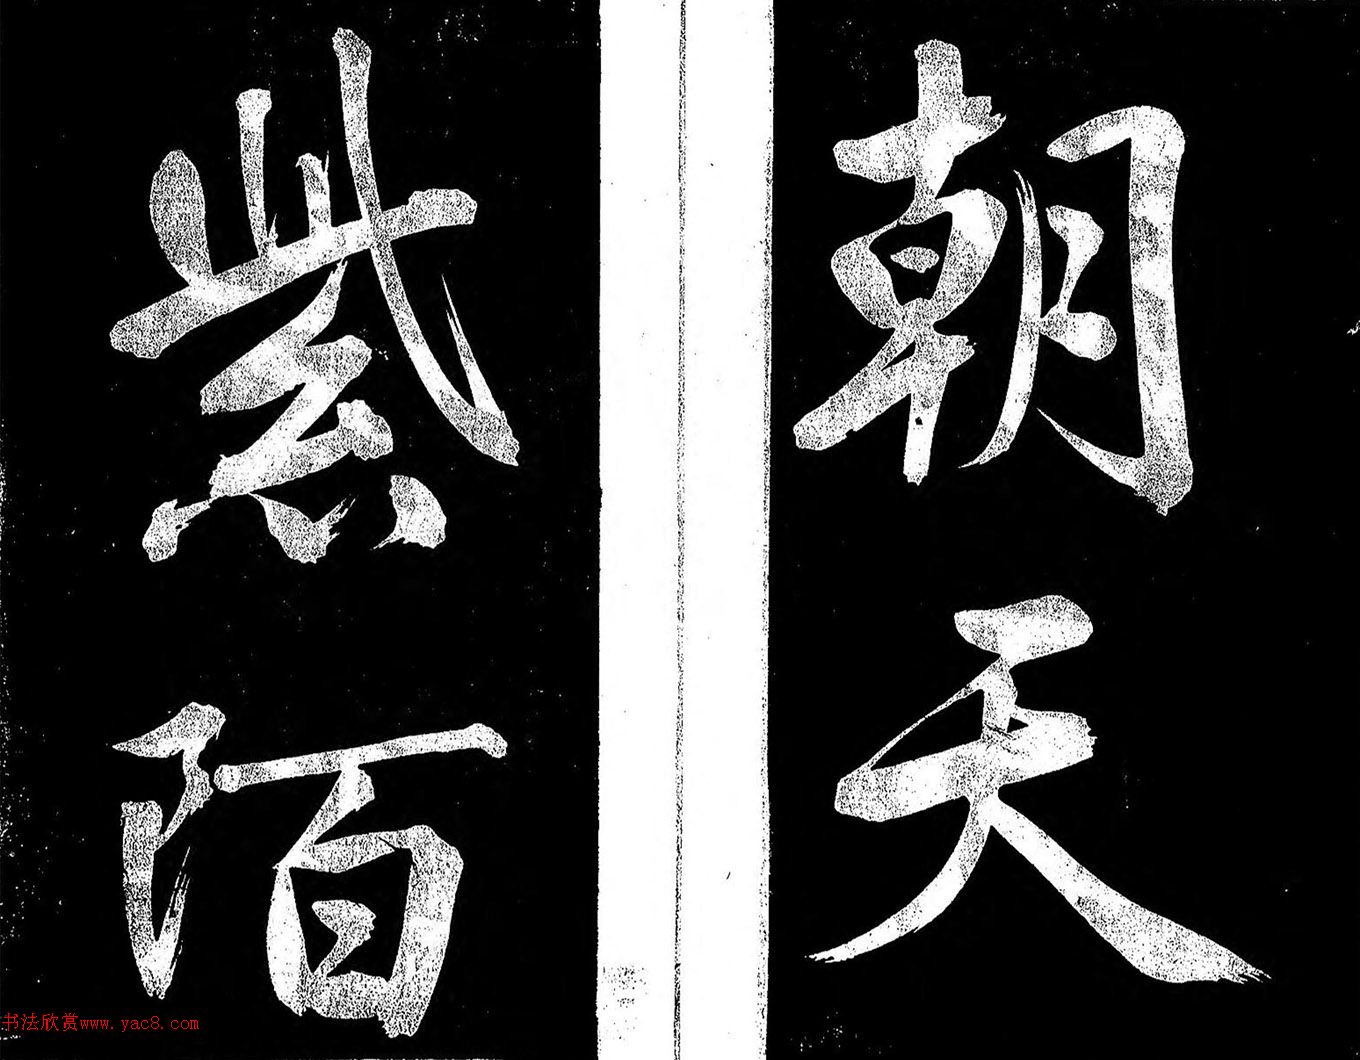 朝天
紫陌
书法欣赏www.yac8.com